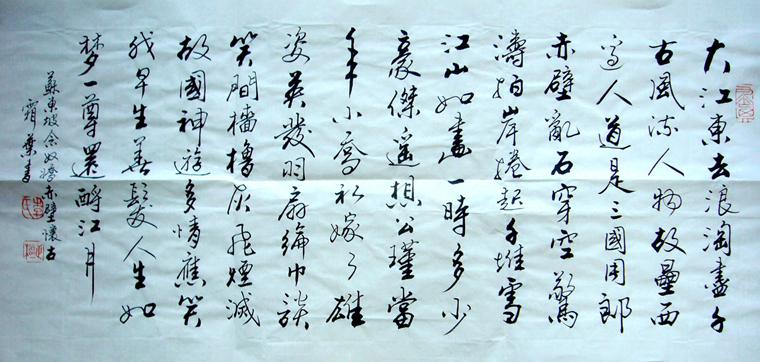 大江東去浪淘盡千
古風流人物故壘西
邊人道是三國周郎
赤壁亂石穿空驚
濤拍岸捲起千堆雪
江山如畫一時多少
豪傑遙想公瑾當
年小喬初嫁了雄
姿英發羽扇綸巾談
笑間檣櫓灰飛煙滅
故國神遊多情應笑
我早生華髮人生如
夢一尊還酹江月
蘇東坡念奴嬌赤壁懷古
霜葉書